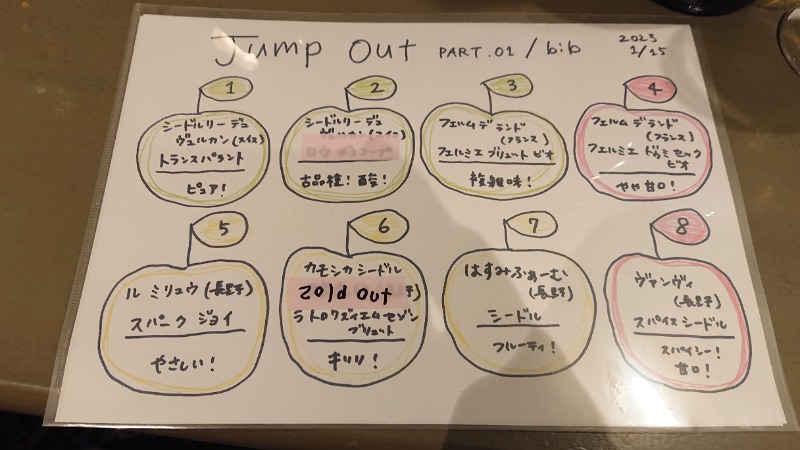 Jump Out PART.01 / bib
2023
1/15
1
シードルリーデュ
ヴュルカン(スイス)
トランスパラント
ピュア!
2
シードルリーデュ
ヴュルカン(スイス)
古品種!酸!
3
フェルムデランド
(フランス)
フェルミエブリュットビオ
複雑味!
4
フェルムデランド
(フランス)
フェルミエドゥミセック
ビオ
やや甘口!
5
ルミリュウ(長野)
スパークジョイ
やさしい!
6
カモシカシードル
Zold out
ラトロワズィエムセゾン
ブリュット
キリリ!
7
はすみふぁーむ
(長野)
シードル
フルーティ!
8
ヴァンヴィ
(長野)
スパイスシードル
スパイシー!
甘口!